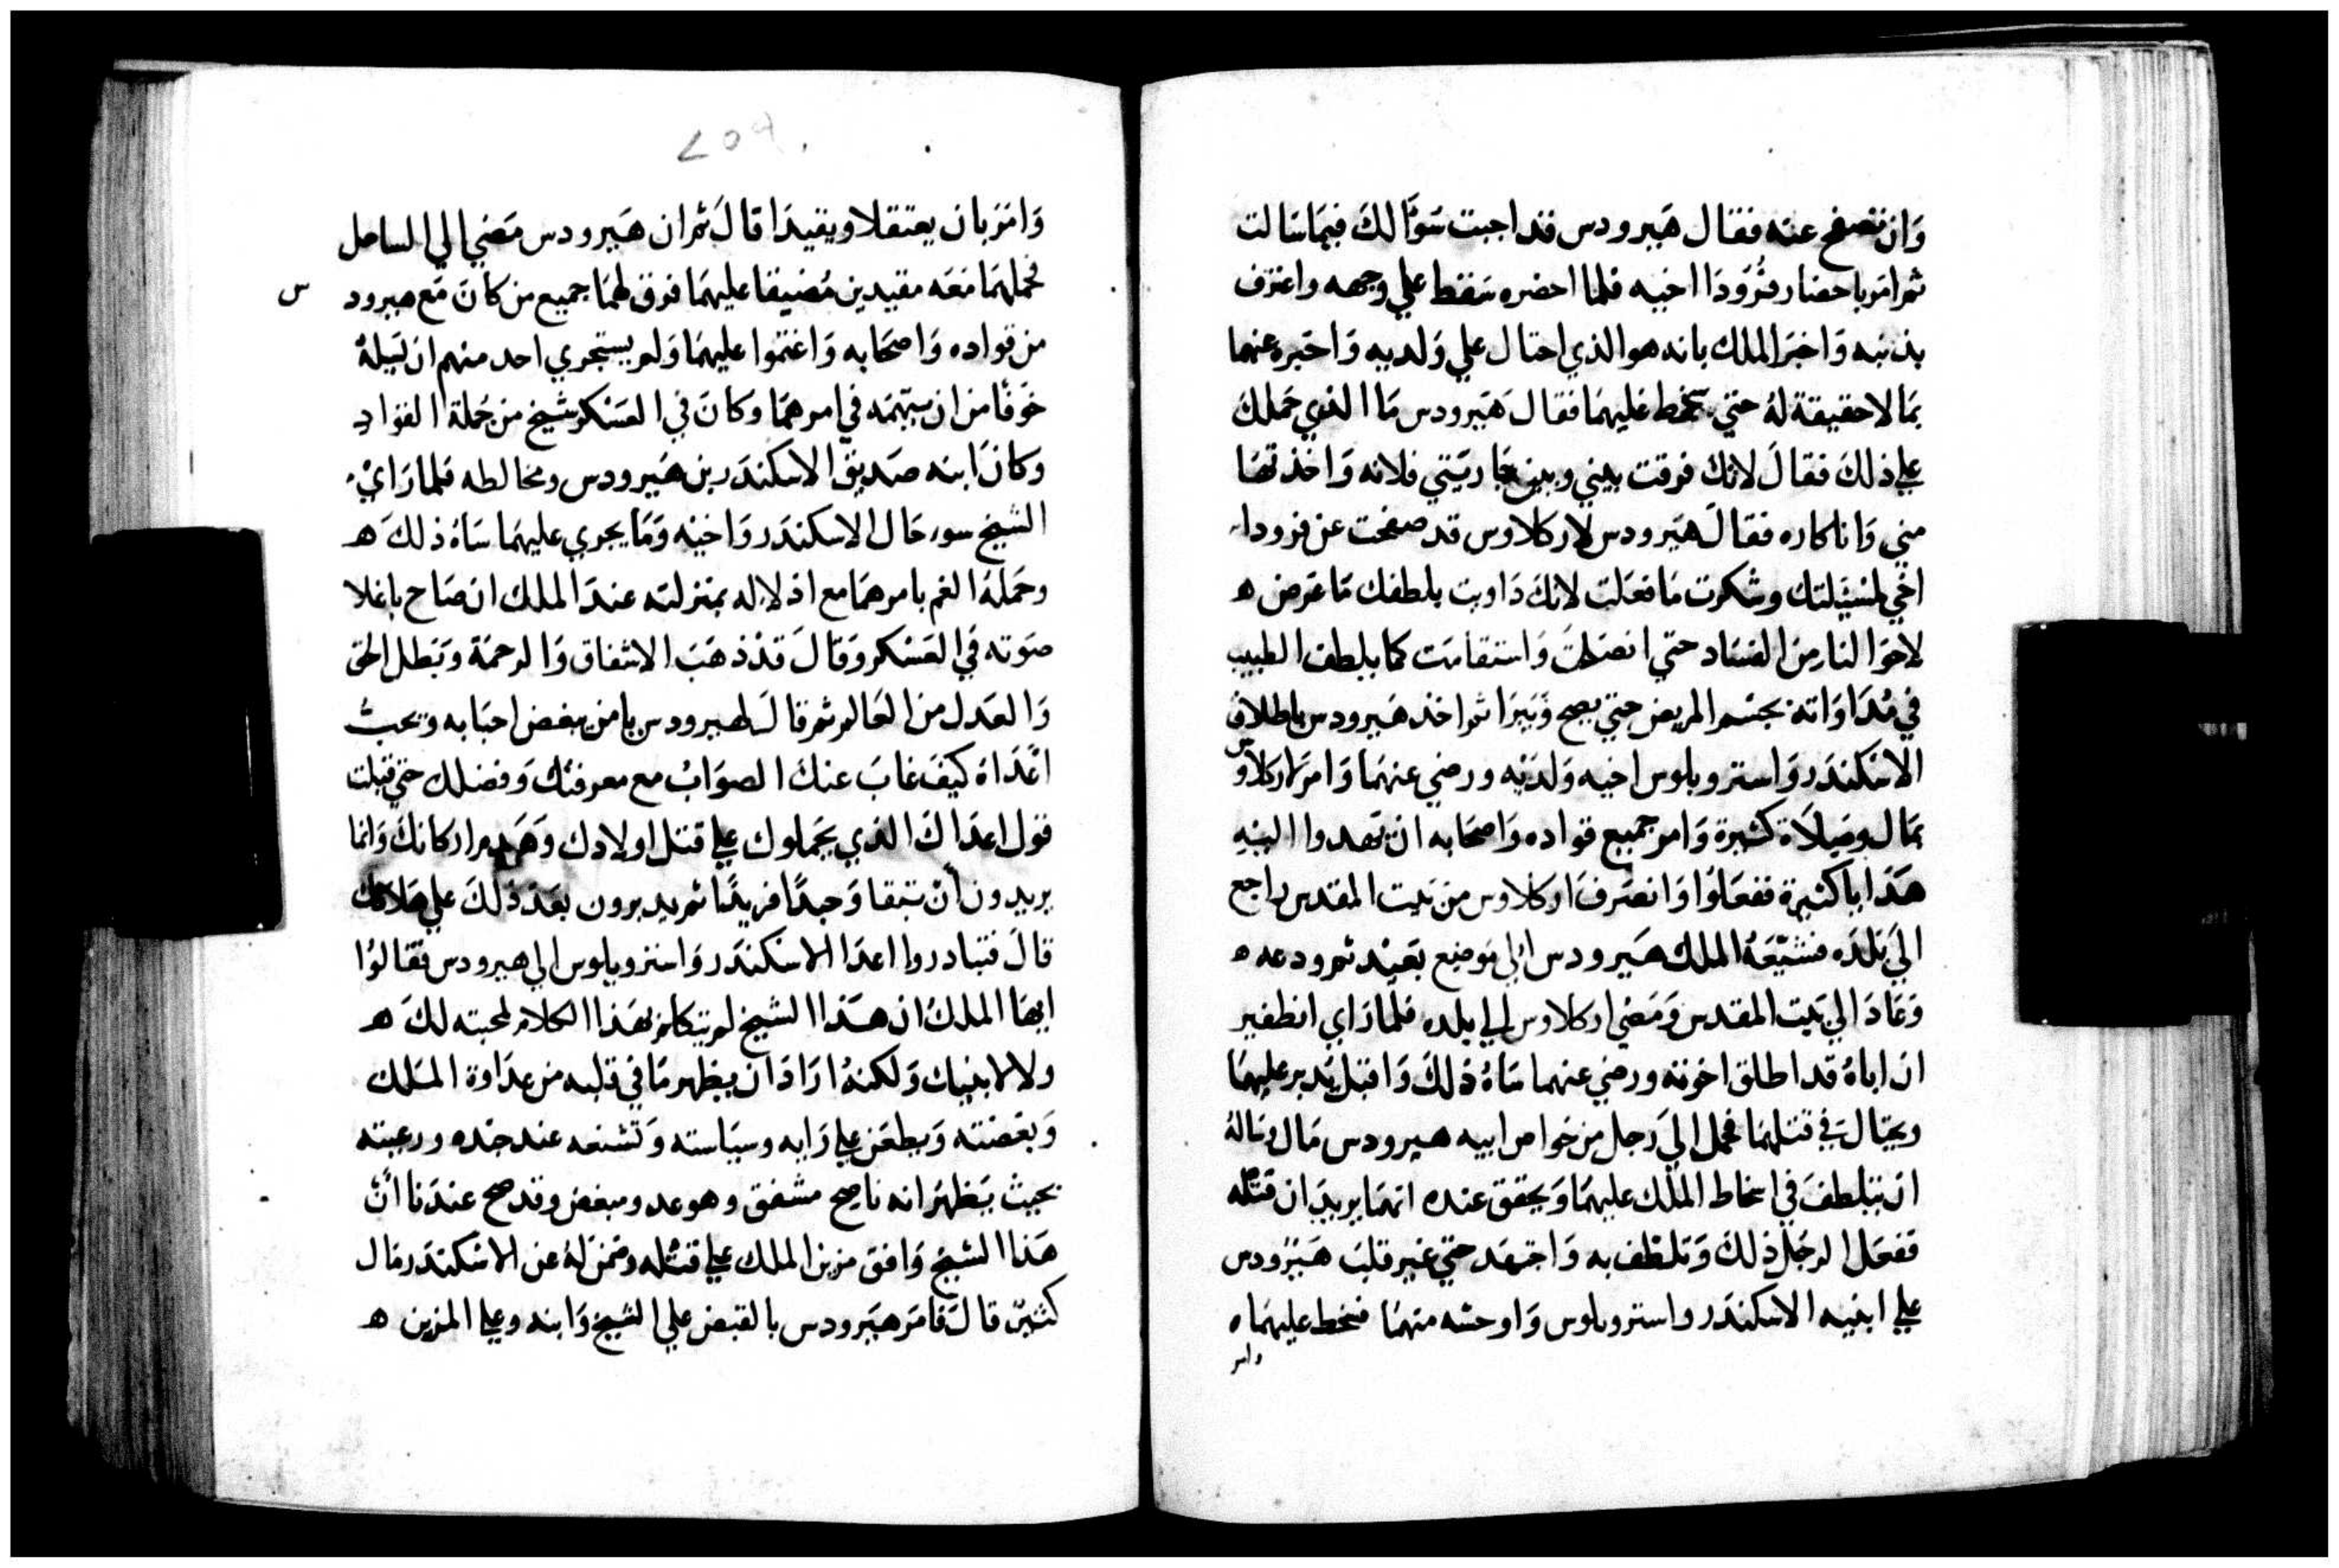 وَان تصفح عنه فقال هَيرودس قد اجبت سَوَّالكَ فيمَا سَالت
ثمر امَر باحضار فرُودَا اخيه فلما احضره سَقط علي وجهه واعترف
بذنبه وَاخبَر الملك بانه هو الذي احتال علي وَلديه وَاخبَره عنهما
بمَا لا حقيقة لهُ حتي سخط عَليهمَا فقال هَيرودس مَا الذي حَملك
علي ذلكَ فقالَ لانك فرقت بيني وبين جَاريَتي فلانه وَاخذتهَا
مني وَانا كاره فقالَ هيَرودس لاركلاوس قد صفحت عن فرودا
اخي لمسَيَلتك وشكرت مَا فعَلت لانكَ دَاويت بلطفك مَا عَرض ه
لاحوَالنا من الفسَاد حتي انصَلحَت وَاستقامَت كما يلطف الطبيب
في مُدَاوَاته بجسَم المريض حتي يصح وَيَبرَا ثمر اخذ هَيرودس باطلاق
الاسَكندَر وَاستروبلوس اخيه وَلديَه ورضي عنهمَا وَامرَ اركلاوس
بمَال وصَيلاَة كثيرة وَامر جميع قواده وَاصحَابه ان يَهدوا اليَهِ
هَدَايا كثيرة ففعَلوُا وَانصَرفَ اركلاوس من بَيت المقدس راجع
اليَ بَلدَه فشيَّعَهُ الملك هَيرودس الي مَوضع بعَيد ثمر ودعه ه
وَعَادَ الي بَيت المقدس وَمَضي اركلاوس الي بلده فلمَّا رَاي انطفير
ان اباهُ قد اطلق اخوته ورضي عنهما سَاهُ ذلكَ وَاقبَل يَدبر عليهمَا
ويحتالَ في قتلهمَا فحمل اليَ رَجل من خواص ابيه هيرودس مَال وسَالهُ
ان يتلطفَ في اسخاط الملَك عليهمَا وَيحقق عنده انهمَا يريدَان قتله
ففعَل الرجَل ذلكَ وَتلطف به وَاجتهَد حتي غير قلبَ هَيرَودس
علي ابنيه الاسكندَر واستروبلوس وَاوحشه منهمَا فسخط عليهمَا ه
وامر
وَامَرَ بان يعتقلا ويقيدَا قالَ ثمر ان هَيرودس مَضي الي الساحل
فحملهمَا مَعَه مقيدين مُضيقا عليهمَا فرق لهمَا جميع من كانَ مَع هيرود
س
من قواده وَاصحَابه وَاغتموا عليهمَا وَلم يستجري احد منهم ان يَسَلهُ
خَوفًا من ان يتهمَه في امرهمَا وكانَ في العسَكر شيخ من جُملة القوَادِ
وكانَ ابنه صَديق الاسكندَر بن هَيرودس ومخالطه فلما رَايْ
الشيخ سوء حَال الاسكندَر وَاخيَه وَمَا يجري عليهمَا سَاهُ ذلكَ ه
وحَملهُ الغم بامرهمَا مع اذلاله بمَنزلته عندَ الملك ان صَاح باعلا
صَوته في العَسَكر وَقالَ قدْ ذهَبَ الاشفاق وَالرحمَة وَبَطل الحق
وَالعَدل من العَالم ثمر قالَ لهيرودس يا من يبغض احبَابه وَيحبُّ
اعَدَاهُ كيفَ غابَ عنكَ الصوَابُ مع معرفتك وَفضلك حتي قبلت
قول اعدَاكَ الذي يحَملوك علي قتل اولادك وَهَدم اركانكَ وَانما
يريدون أنْ تبقا وَحيدًا فريدًا ثمر يدبرون بعَد ذلكَ علي هَلاكك
قالَ فتبادروا اعدَا الاسَكندَر وَاستروبلوس الي هيرودس فقالوُا
ايهَا الملكُ ان هَذا الشيخ لم يتكلم بهَذا الكلام لمحبته لكَ ه
ولا لابنيك وَلكنهُ ارَادَ ان يظهر مَا في قلبه من عدَاوة المَلك
وَبغضته وَيطعَن علي رَايه وسيَاسته وَتشنعه عند جنده ورعيته
بحيث يَظهرَ انه ناصح مشفق وهو عدو مبغض وقد صح عندَنا أنْ
هَذا الشيخ وَافق مزين الملك علي قتله وضمَن لهُ عن الاسَكندَر مَال
كثيرٌ قالَ فامَر هَيَرودس بالقبض علي الشيخ وَابنه وعلي المزين ه